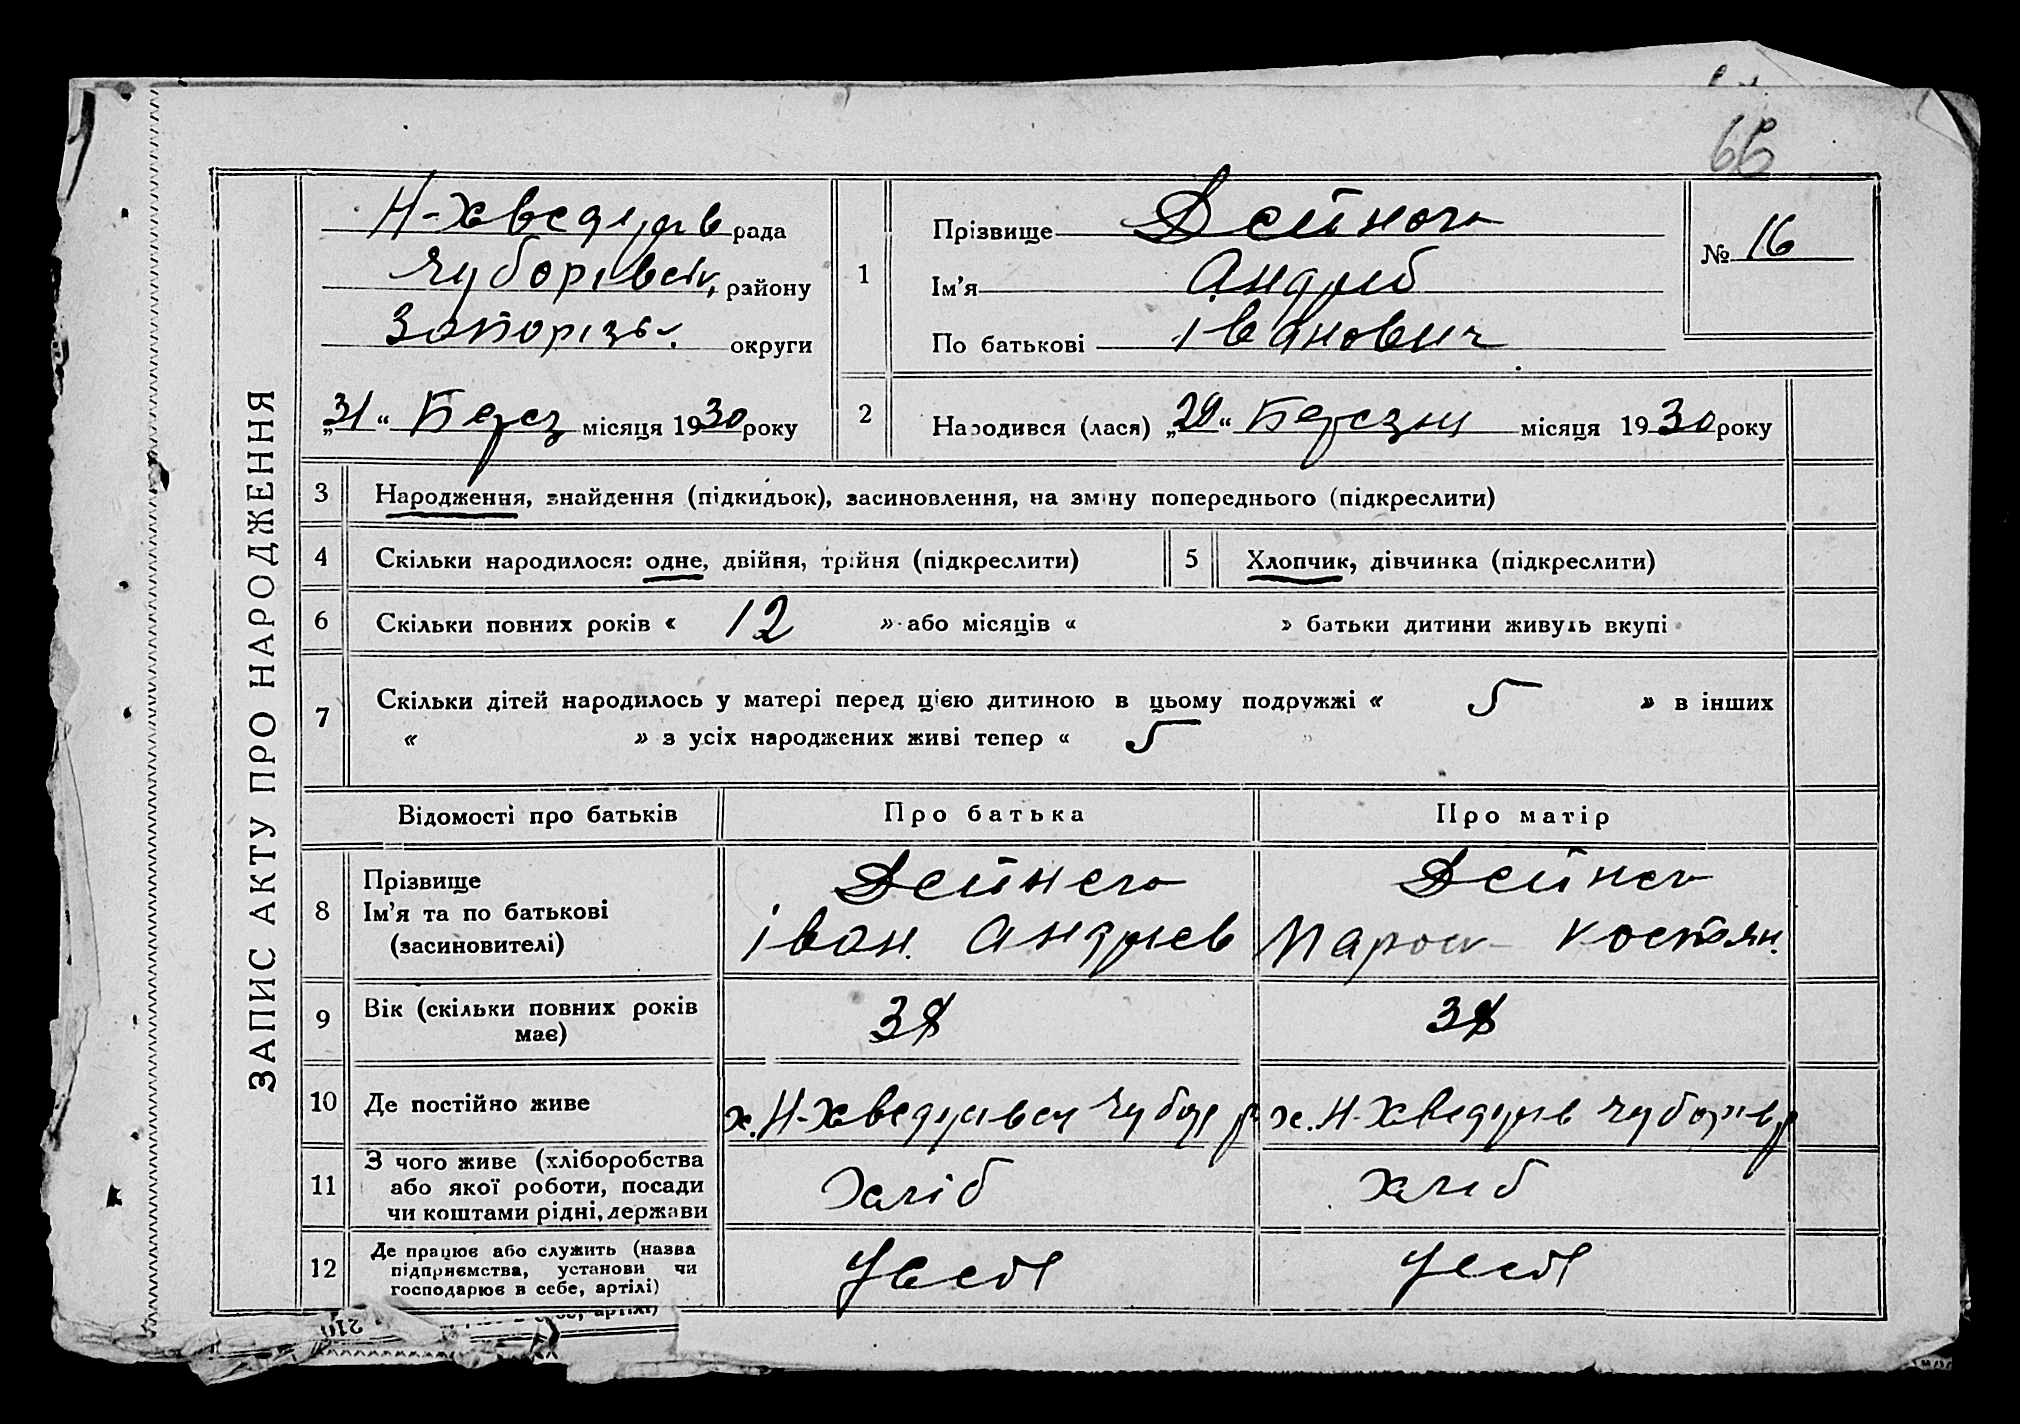 66
ЗАПИС АКТУ ПРО НАРОДЖЕННЯ
Н-Хведорів рада
Чубарівськ. району
Запорізьк. округи
„31“ Берез місяця 1930 року
1
Прізвище Дейнега
Ім'я Андрій
По батькові Іванович
№ 16
2 Народився (лася) „29“ Березня місяця 1930 року
3 Народження, знайдення (підкидьок), засиновлення, на зміну попереднього (підкреслити)
4 Скільки народилося: одне, двійня, трійня (підкреслити)
5 Хлопчик, дівчинка (підкреслити)
6 Скільки повних років « 12 » або місяців « » батьки дитини живуть вкупі
7 Скільки дітей народилось у матері перед цією дитиною в цьому подружжі « 5 » в інших
« » з усіх народжених живі тепер « 5 »
Відомості про батьків Про батька Про матір
8 Прізвище
Ім'я та по батькові
(засиновителі)
Дейнега
Іван Андрієв
Дейнега
Костян.
9 Вік (скільки повних років
має)
38
38
10 Де постійно живе
х. Н-Хведорівськ Чубар р
х. Н-Хведорів Чубарів р
11 З чого живе (хліборобства
або якої роботи, посади
чи коштами рідні, держави
хліб
хліб
12 Де працює або служить (назва
підприємства, установи чи
господарює в себе, артілі)
У себе
У себе
артілі)